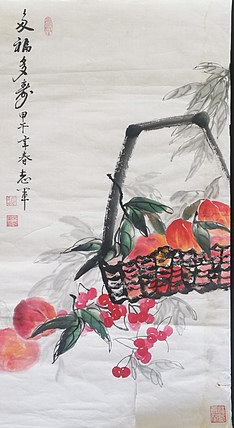 多福多寿
甲午年春志军